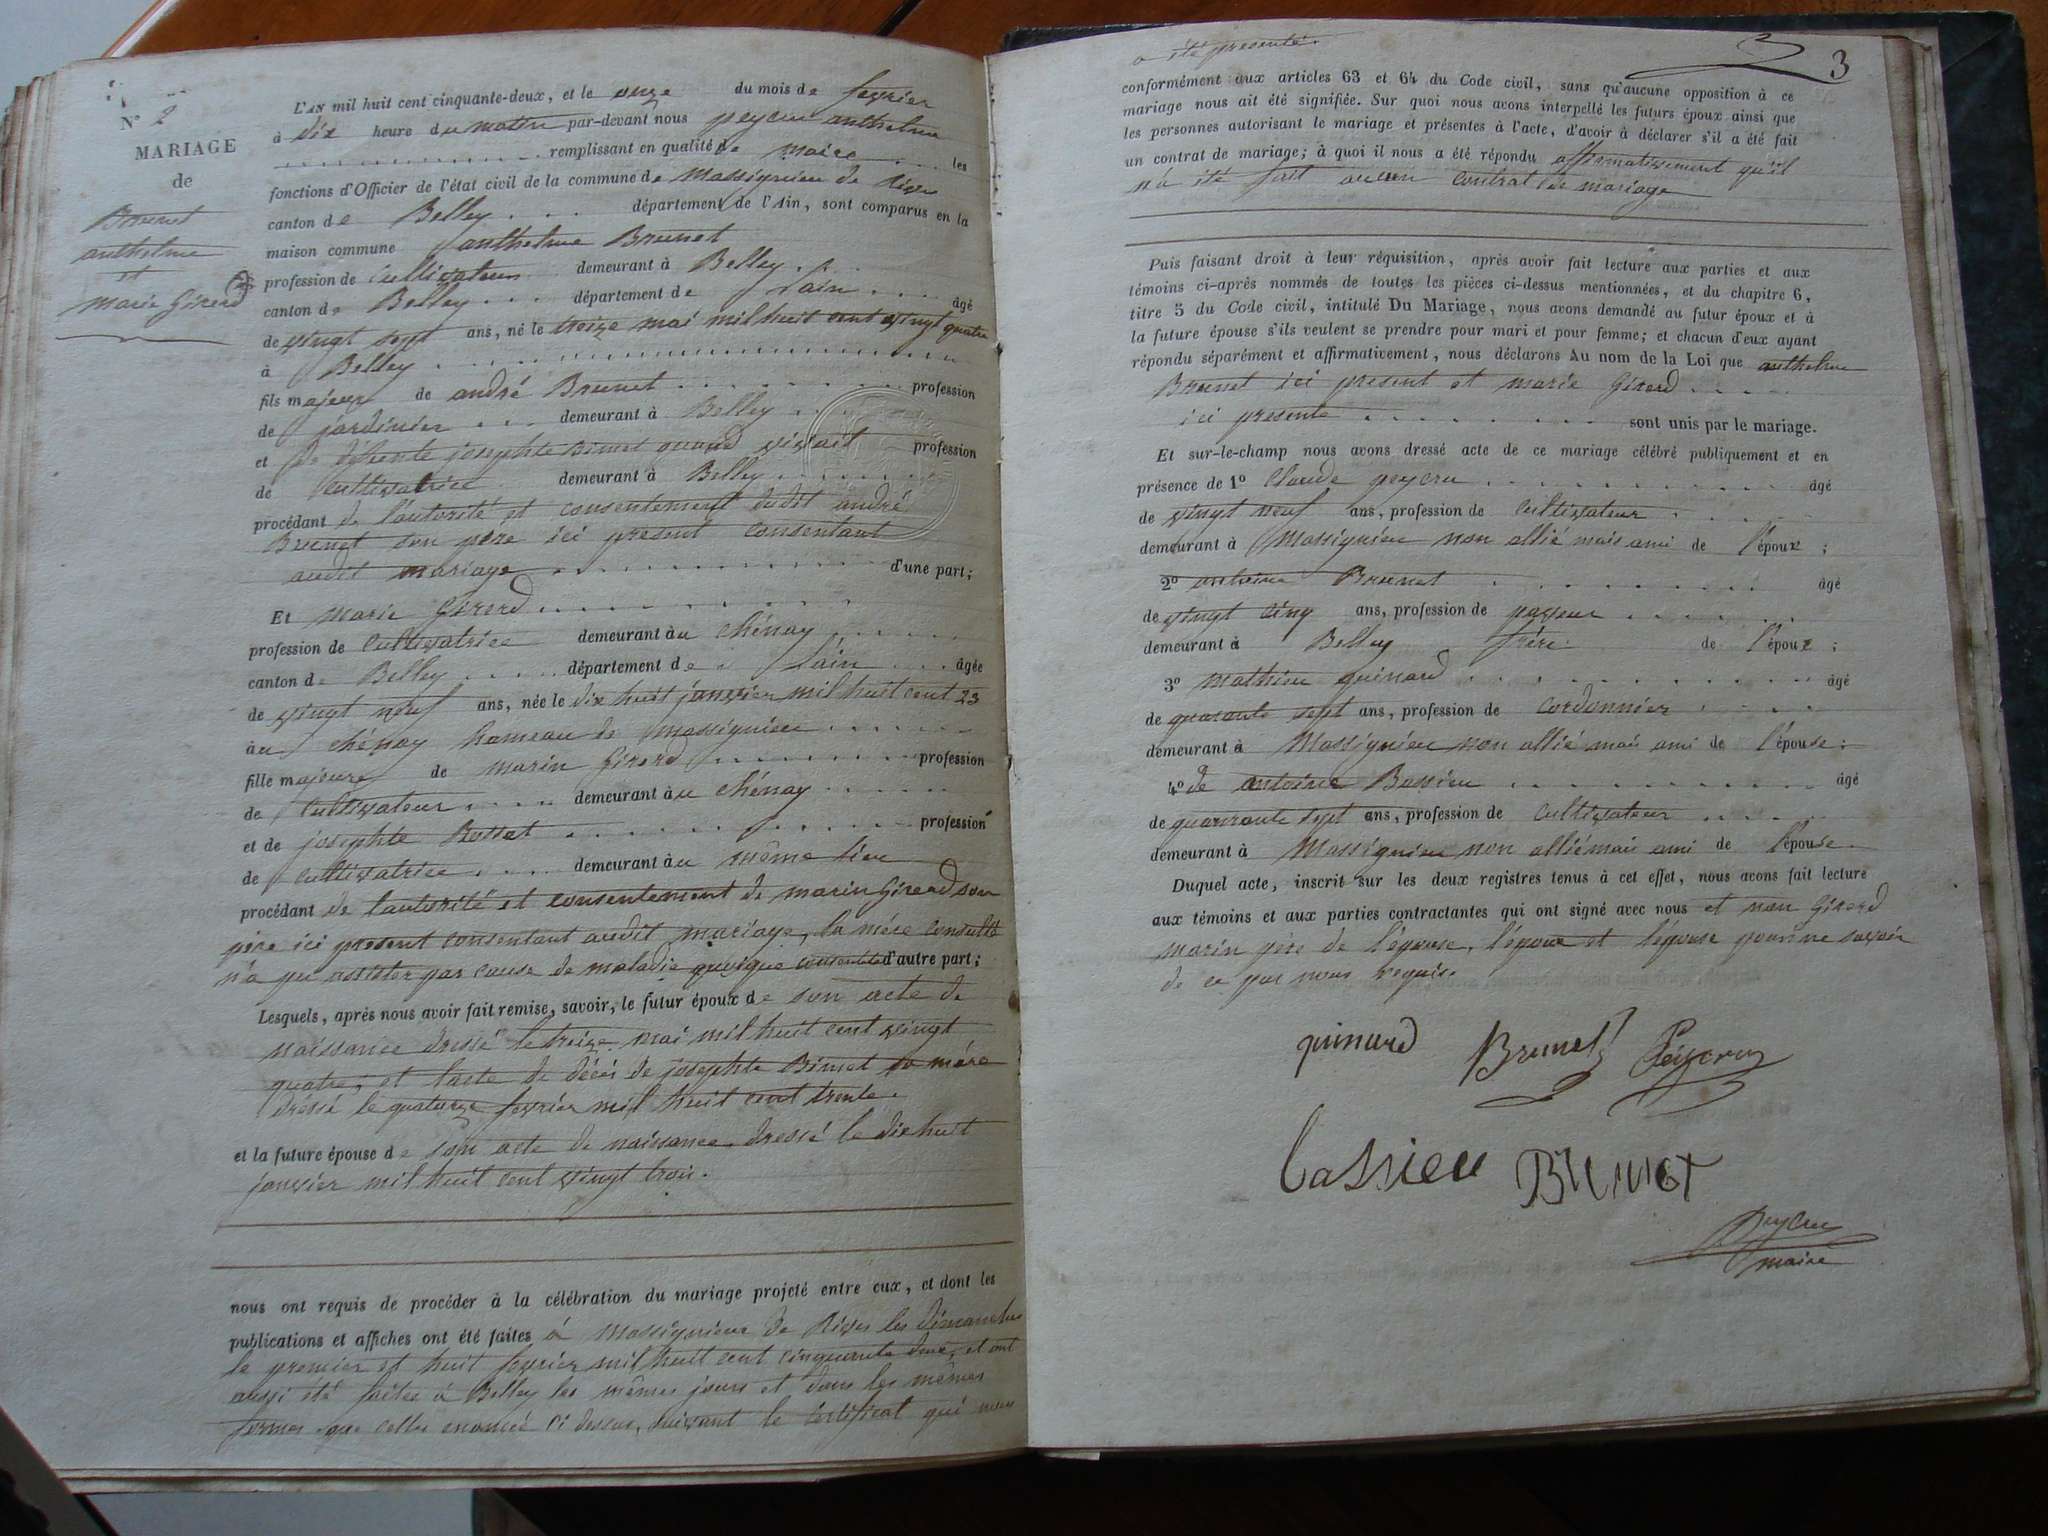 N° 2
MARIAGE
de
Brunet
anthelme
et
marie Girerd
L'AN mil huit cent cinquante-deux, et le onze du mois de fevrier
à dix heure du matin par-devant nous peycru anthelme
remplissant en qualité de maire les
fonctions d'Officier de l'état civil de la commune de Massignieu de rives
canton de Belley département de l'Ain, sont comparus en la
maison commune anthelme Brunet
profession de cultivateur demeurant à Belley
canton de Belley département de l'ain âgé
de vingt sept ans, né le treize mai mil huit cent vingt quatre
à Belley
fils majeur de andré Brunet profession
de jardinier demeurant à Belley
et de défunte josephte Binet quand vivait profession
de cultivatrice demeurant à Belley
procédant de l'autorité et consentement dudit andré
Brunet son père ici present consentant
audit mariage d'une part;
Et marie Girerd
profession de cultivatrice demeurant au chénay
canton de Belley département de l'ain âgée
de vingt neuf ans, née le dix huit janvier mil huit cent 23
au chénay hameau de massignieu
fille majeure de marin Girerd profession
de cultivateur demeurant au chénay
et de josephte Rosset profession
de cultivatrice demeurant au même lieu
procédant de l'autorité et consentement de marin Girerd son
père ici present consentant audit mariage, la mère consulté
n'a pu assister par cause de maladie quoique consentente d'autre part;
Lesquels, après nous avoir fait remise, savoir, le futur époux de son acte de
naissance dressé le treize mai mil huit cent vingt
quatre, et l'acte de décès de josephte Binet sa mère
dressé le quatorze fevrier mil huit cent trente.
et la future épouse de son acte de naissance dressé le dix huit
janvier mil huit cent vingt trois.
nous ont requis de procéder à la célébration du mariage projeté entre eux, et dont les
publications et affiches ont été faites à Massignieu de Rives les dimanches
le premier et huit fevrier mil huit cent cinquante deux, et ont
aussi été faites à Belley les mêmes jours et dans les mêmes
formes que celles enoncés ci dessus, suivant le certificat qui nous
3
a été presenté.
conformément aux articles 63 et 64 du Code civil, sans qu'aucune opposition à ce
mariage nous ait été signifiée. Sur quoi nous avons interpellé les futurs époux ainsi que
les personnes autorisant le mariage et présentes à l'acte, d'avoir à déclarer s'il a été fait
un contrat de mariage; à quoi il nous a été répondu affirmativement qu'il
n'a été fait aucun contrat de mariage
Puis faisant droit à leur réquisition, après avoir fait lecture aux parties et aux
témoins ci-après nommés de toutes les pièces ci-dessus mentionnées, et du chapitre 6,
titre 5 du Code civil, intitulé Du Mariage, nous avons demandé au futur époux et à
la future épouse s'ils veulent se prendre pour mari et pour femme; et chacun d'eux ayant
répondu séparément et affirmativement, nous déclarons Au nom de la Loi que anthelme
Brunet ici present et marie Girerd
ici presente sont unis par le mariage.
Et sur-le-champ nous avons dressé acte de ce mariage célébré publiquement et en
présence de 1° Claude peycru âgé
de vingt neuf ans, profession de cultivateur
demeurant à Massignieu non allié mais ami de l'époux;
2° antoine Brunet âgé
de vingt cinq ans, profession de
demeurant à Belley frère de l'époux;
3° Mathieu guinard âgé
de quarante sept ans, profession de cordonnier
demeurant à Massignieu non allié mais ami de l'épouse;
4° de antoine Bassieu âgé
de quarante sept ans, profession de cultivateur
demeurant à Massignieu non allié mais ami de l'épouse.
Duquel acte, inscrit sur les deux registres tenus à cet effet, nous avons fait lecture
aux témoins et aux parties contractantes qui ont signé avec nous et non Girerd
marin père de l'épouse, l'époux et l'épouse pour ne savoir
de ce par nous requis.
guinard Brunet Peycru
bassieu BRUNET
Peycru
maire